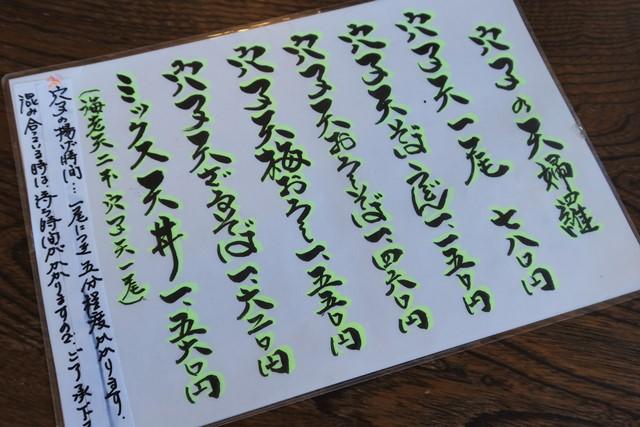 穴子の天婦羅
穴子天一尾 七八〇円
穴子天そば・うどん一、一五〇円
穴子天おろしそば一、四六〇円
穴子天梅おろし一、五五〇円
穴子天ざるそば一、六二〇円
ミックス天丼一、五六〇円
(海老天二本 穴子天一尾)
穴子の揚げ時間…一尾につき五分程度かかります。
混み合っている時は、待ち時間がかかりますので、ご了承下